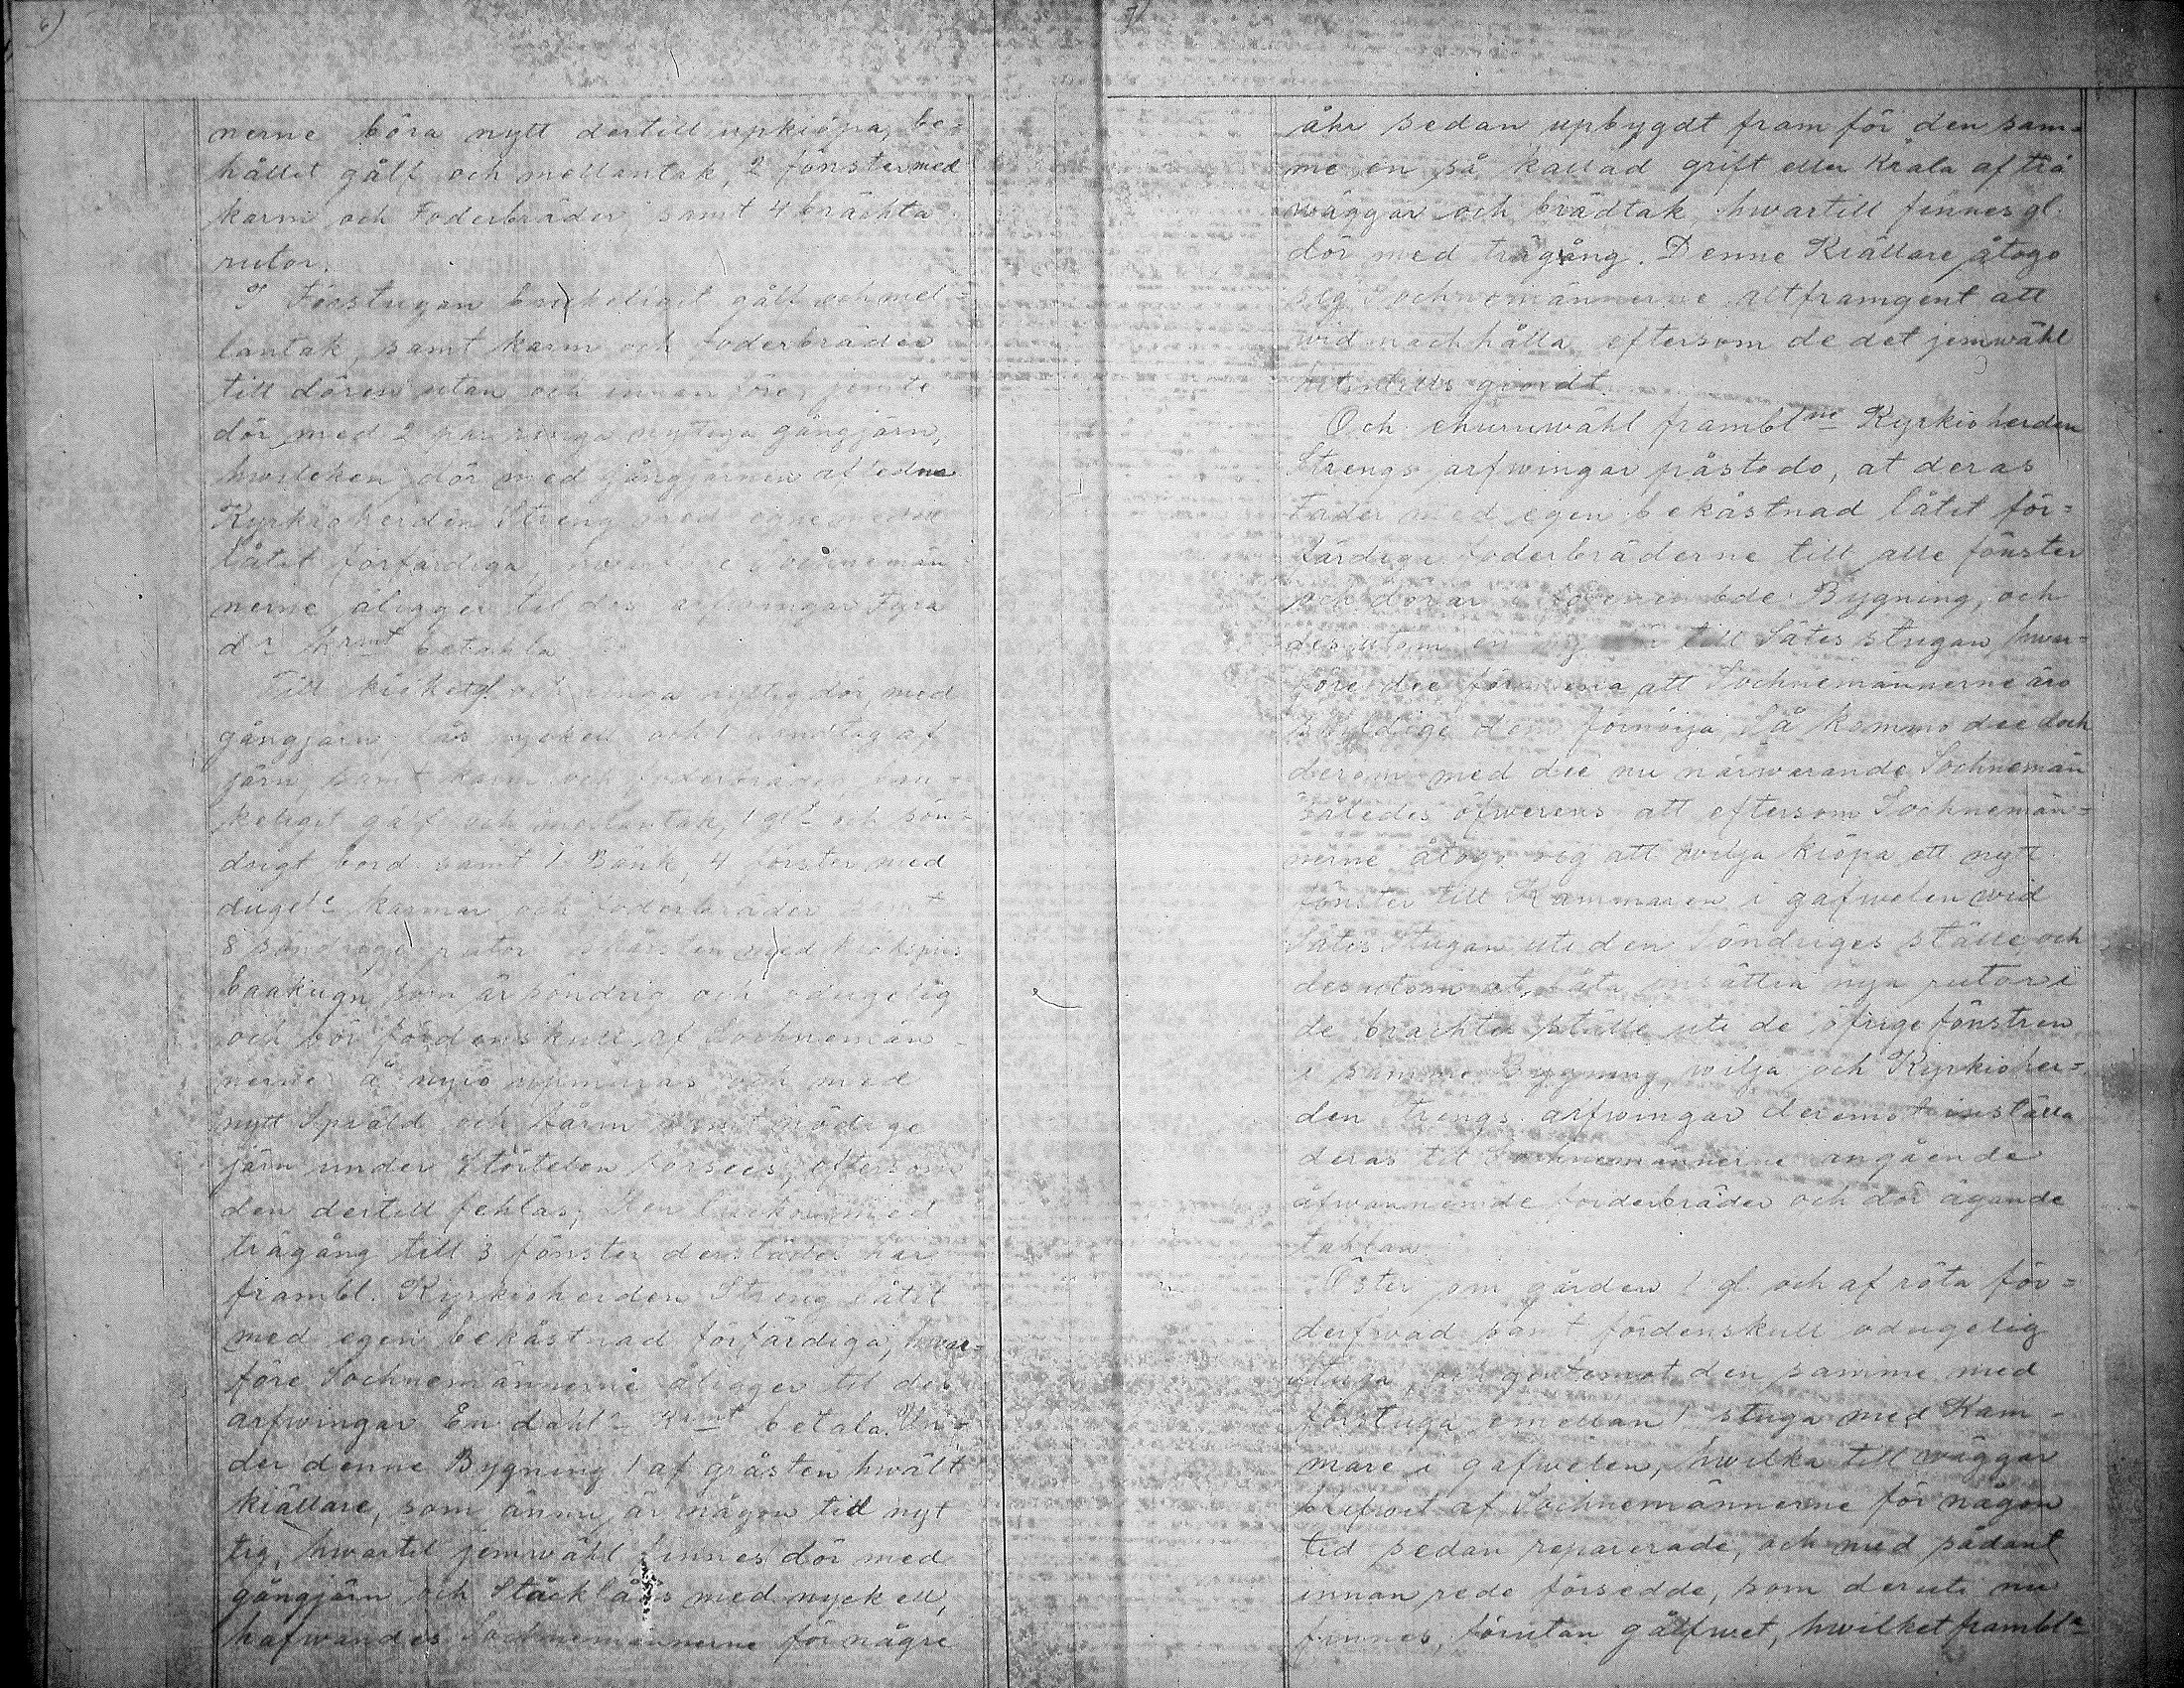 6)
nerne böra nytt dertill upkiöpa, be-
hållit gålf och mellantak, 2 fönster med
karm och Foderbräder samt 4 brächta
rutor.
I Förstugan brukeligit gålf och mel-
lantak, samt karm och foderbräder
till dören utan och innan före, jemte
dör med 2 par nytiga gångjärn,
hwilcken dör med gångjärnen afledne
Kyrkioherden Streng med egne medel
låtit förfärdiga, Sochnemän
nerne åligger til des arfwingar Fyra
dr krmt betahla
Till kiöket gl. och nyttig dör, med
gångjärn, lås nyckel och 1 af
järn, samt karm och foderbräder, bru-
keligit gålf och mellantak, 1 glt och sön-
drigt bord samt 1 Bänk, 4 fönster med
dugel: karmar och foderbräder samt
8 söndrige rutor med kiökspis
baakugn som är söndrig och odugelig
och bör fördenskull af Sochnemän-
nerne å nyio upmuras och med
nytt Spiäld och samt nödige
järn under försees, eftersom
den dertill fehlas; Men luckor med
trägång till 3 fönster derstädes har
frambl. Kyrkioherden Streng låtit
med egen bekåstnad förfärdiga, hwar-
före Sochnemännerne åligger til des
arfwingar En dahlr Krmt betala. Un-
der denne Bygning 1 af gråsten hwält
kiällare, som ännu är någon tid nyt
tig, hwartil jemwähl finnes dör med
gångjärn och Stäcklås med nyckell,
hafwandes Sochnemännerne för någre
7)
åhr sedan upbygdt fram för den sam-
me en så kallad grift eller Krala af trä
wäggar och brädtak, hwartill finnes gl.
dör med trägång. Denne Kiällare åtogo
sig Sochnemännerne altframgent att
widmachhålla eftersom de det jemwähl
hitintills giordt.
Och ehuruwähl framblne Kyrkioherden
Strengs arfwingar påstodo, at deras
Fader med egen bekåstnad låtit för-
färdiga foderbräderne till alle fönster
och dörar i Bygning, och
desutom en till Sätes stugan, hwar-
före dee förmena att Sochnemännerne äro
skyldige dem förnöija, Så kommo dee doch
derom med die nu närwarande Sochnemän
således öfwerens att eftersom Sochnemän-
nerne åtogo sig att wilja kiöpa ett nytt
fönster till Kammaren i gafwelen wid
Sätes Stugan uti den Söndriges ställe, och
desutom at låta insättia nya rutor i
de brachtes ställe uti de öfrige fönstren
i samme Bygning, wilja och Kyrkioher-
den trengs arfwingar deremot inställa
deras til Sochnemännerne angående
åfwannemde forderbräder och dör ägande
tahlan.
Öster om gården 1 gl och af röta för-
derfwad samt fördenskull odugelig
stuga, och gentemot den samme med
förstuga emellan 1 stuga med Kam-
mare i gafwelen, hwilka till wäggar
blifwit af Sochnemännerne för någon
tid sedan reparerade, och med sådant
innan rede försedde, som deruti nu
finnes, förutan gålfwet, hwilket framblne